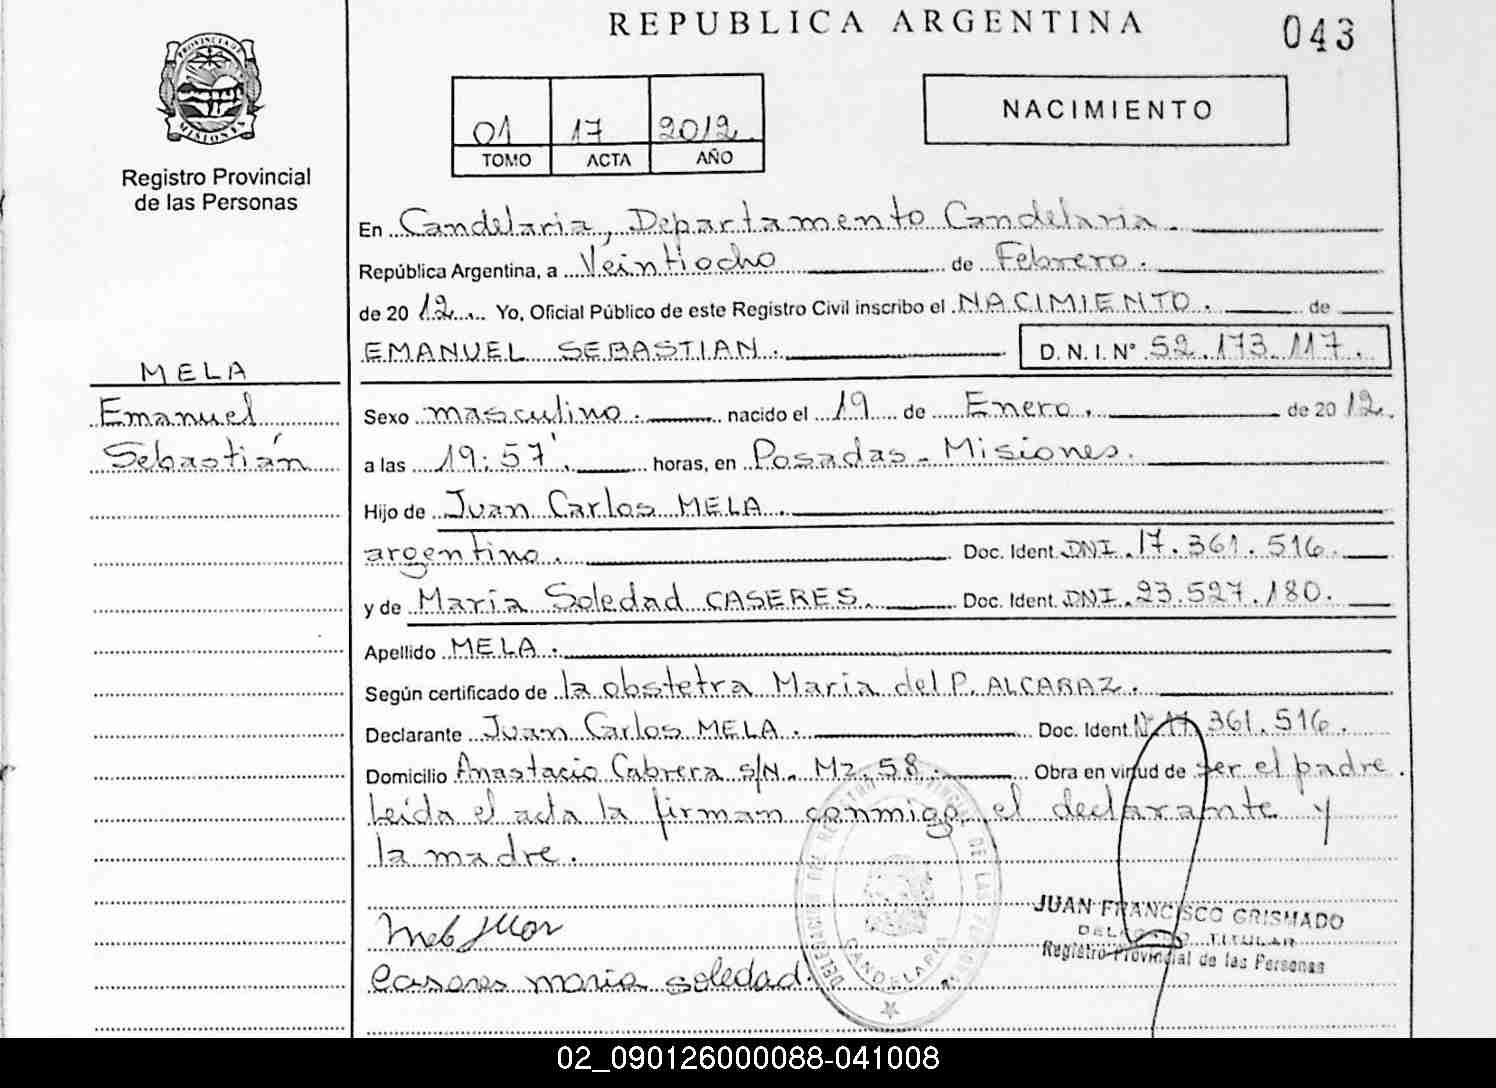 REPUBLICA ARGENTINA
043
PROVINCIA DE
MISIONES
Registro Provincial
de las Personas
01 17 2012
TOMO ACTA AÑO
NACIMIENTO
En Candelaria, Departamento Candelaria.
República Argentina, a Veintiocho de Febrero.
de 2012 Yo, Oficial Público de este Registro Civil inscribo el NACIMIENTO. de
EMANUEL SEBASTIAN. D.N.I.N° 52.173.117.
MELA
Emanuel
Sebastián
Sexo masculino. nacido el 19 de Enero. de 2012.
a las 19:57'. horas, en Posadas - Misiones.
Hijo de Juan Carlos MELA.
argentino. Doc. Ident. DNI. 17.361.516.
y de María Soledad CASERES. Doc. Ident. DNI. 23.527.180.
Apellido MELA.
Según certificado de la obstetra María del P. ALCARAZ.
Declarante Juan Carlos MELA. Doc. Ident. 361.516.
Domicilio Anastacio Cabrera s/N. Mz. 58. Obra en virtud de ser el padre.
Leída el acta la firman conmigo, el declarante y
la madre.
JUAN FRANCISCO GRISMADO
DELEGADO TITULAR
Registro Provincial de las Personas
Caseres maria soledad.
DELEGACION DEL REGISTRO PROVINCIAL DE LAS PERSONAS
CANDELARIA
02_090126000088-041008